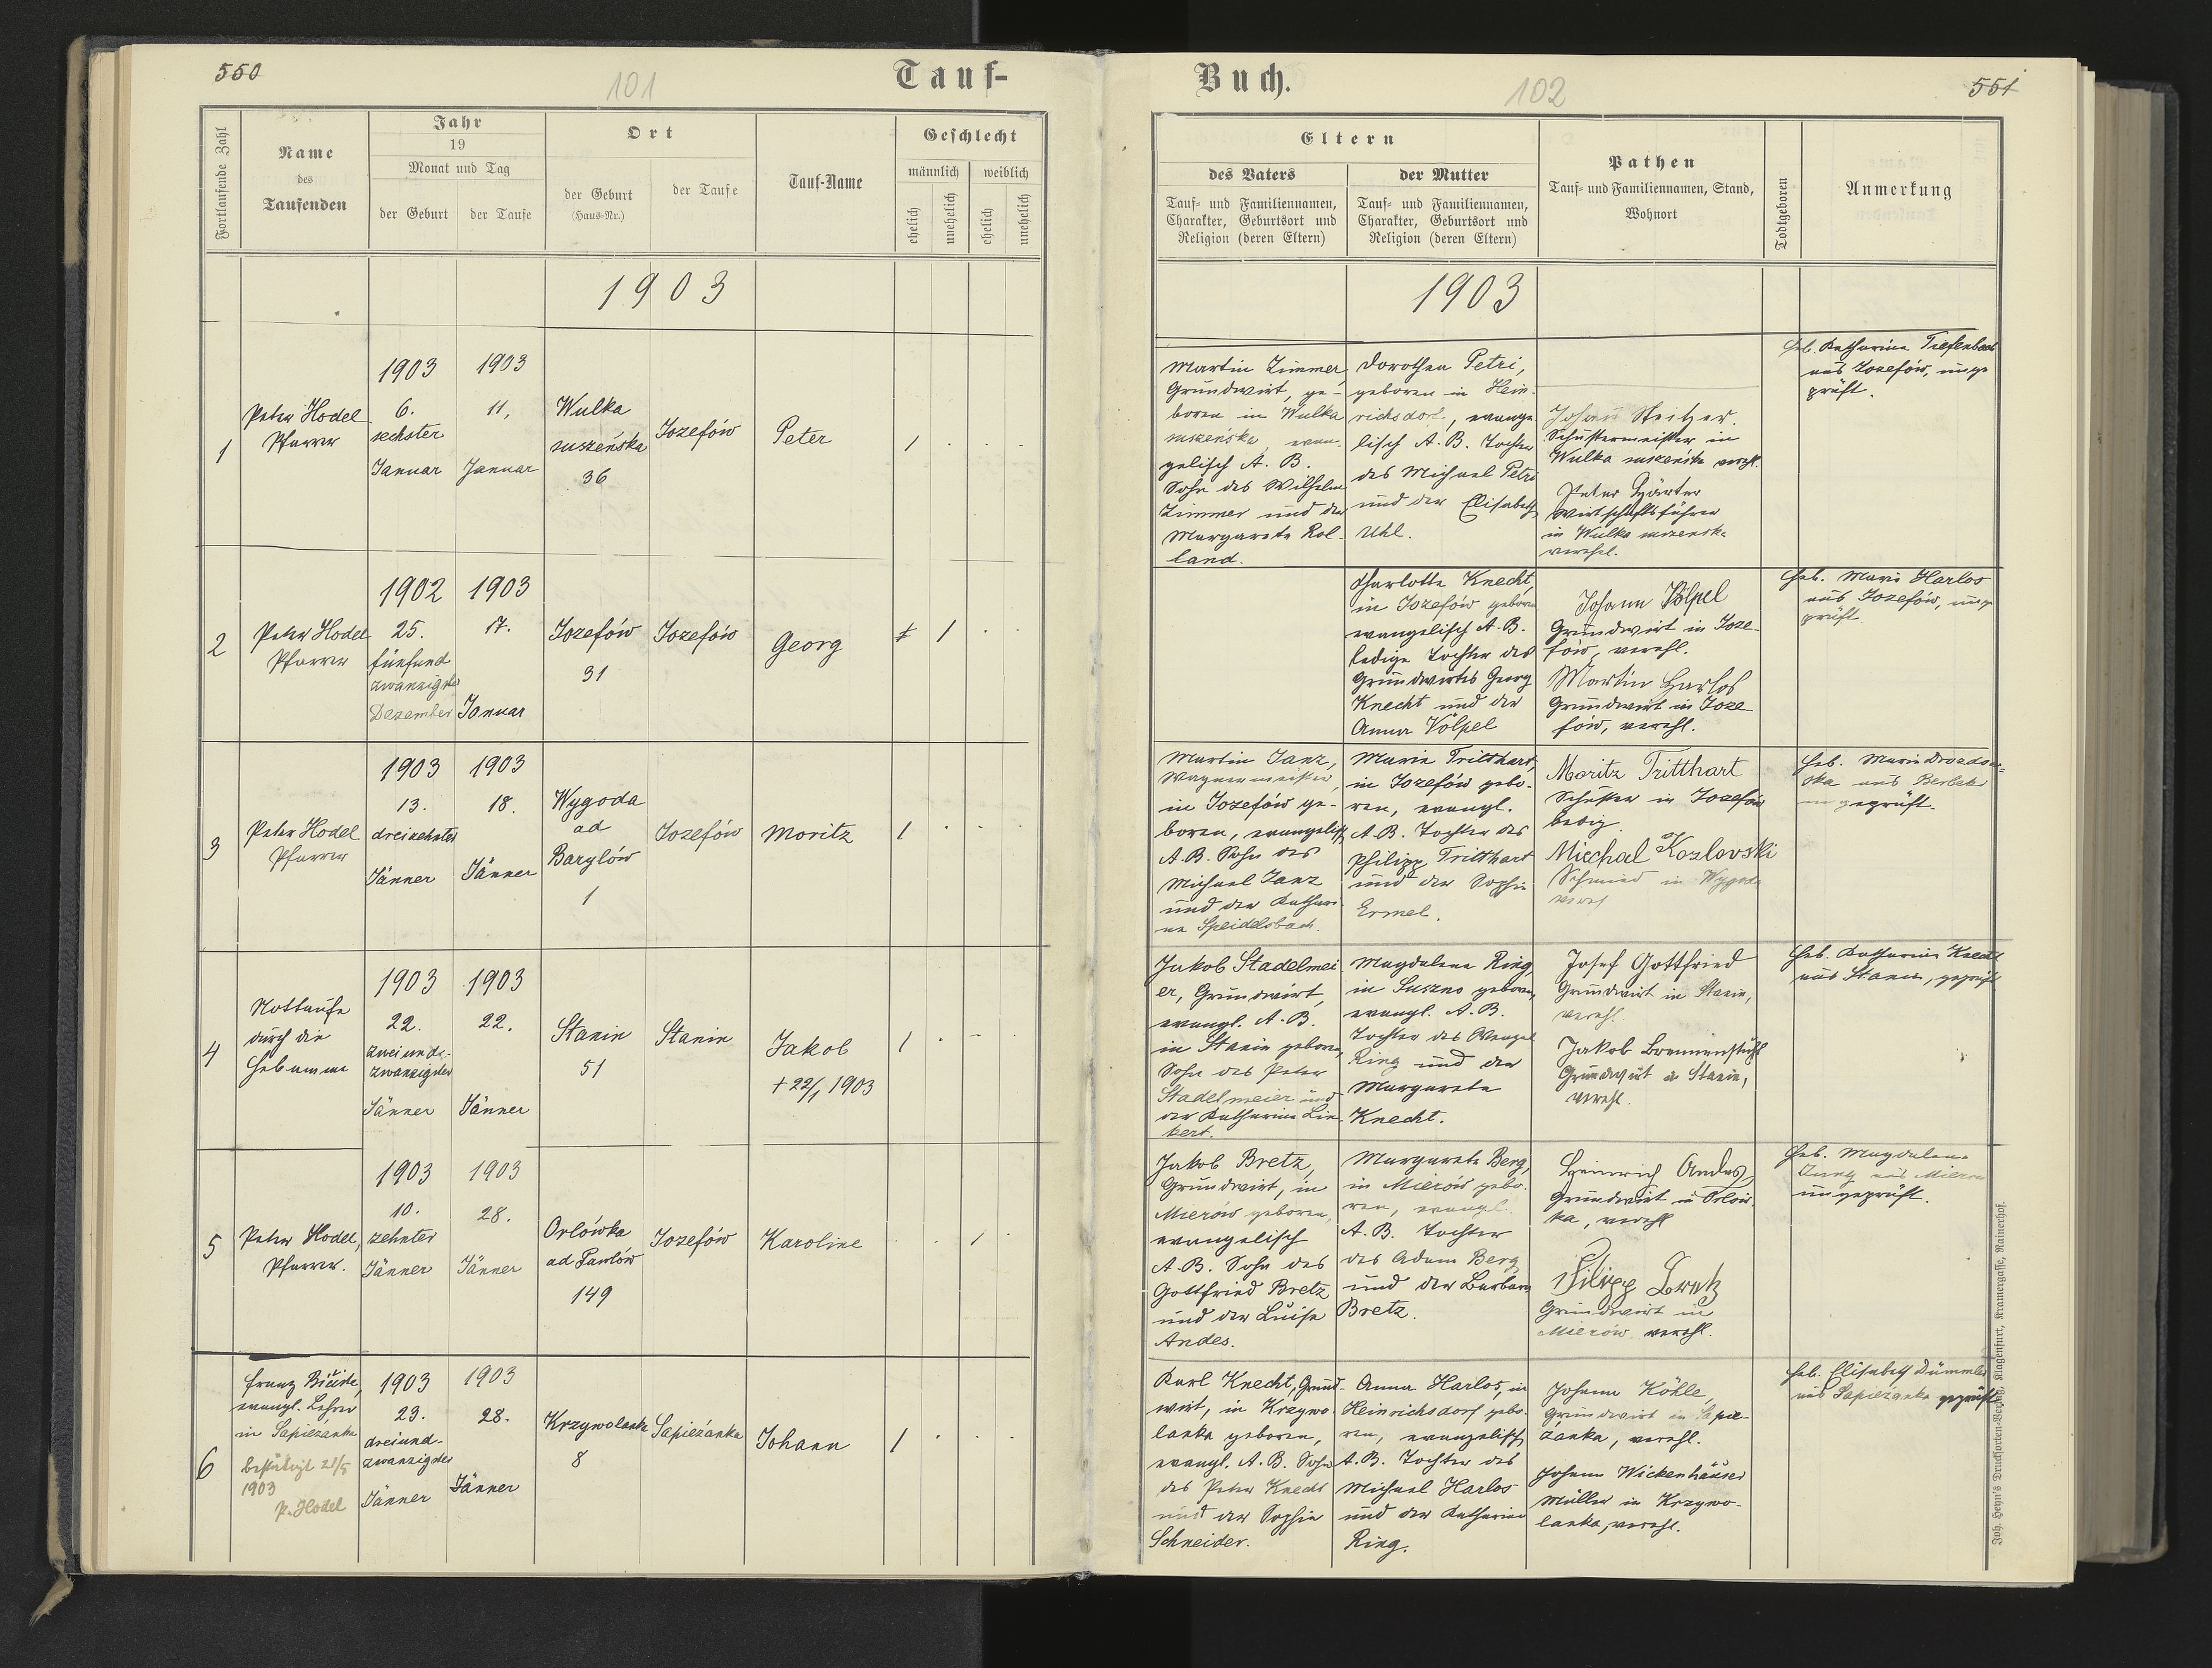 550
101
Tauf-
Fortlaufende Zahl
Name
des
Taufenden
Jahr
19
Monat und Tag
der Geburt
der Taufe
Ort
der Geburt
(Haus-Nr.)
der Taufe
Tauf-Name
Geschlecht
männlich
weiblich
ehelich
unehelich
ehelich
unehelich
1903
1
Peter Hodel
Pfarrer
1903
6.
sechster
Januar
1903
11.
Januar
Wulka
suszeńska
36
Józefów
Peter
1
2
Peter Hodel
Pfarrer
1902
25.
fünfund
zwanzigster
Dezember
1903
17.
Januar
Józefów
31
Józefów
Georg
1
3
Peter Hodel
Pfarrer
1903
13.
dreizehnter
Jänner
1903
18.
Jänner
Wygoda
ad
Barylów
1
Józefów
Moritz
1
4
Nottaufe
durch die
Hebamme
1903
22.
zweiund-
zwanzigster
Jänner
1903
22.
Jänner
Stanin
51
Stanin
Jakob
+ 22/1 1903
1
5
Peter Hodel,
Pfarrer.
1903
10.
zehnter
Jänner
1903
28.
Jänner
Orlówka
ad Pawlów
149
Józefów
Karoline
1
6
Franz
evangl. Lehrer
in Sapieżanka
bestätigt
1903
P. Hodel
1903
23.
dreiund-
zwanzigster
Jänner
1903
28.
Jänner
Krzywolanka
8
Sapieżanka
Johann
1
Buch.
102
551
Eltern
des Vaters
Tauf- und Familiennamen,
Charakter, Geburtsort und
Religion (deren Eltern)
der Mutter
Tauf- und Familiennamen,
Charakter, Geburtsort und
Religion (deren Eltern)
Pathen
Tauf- und Familiennamen, Stand,
Wohnort
Todtgeboren
Anmerkung
1903
Martin Zimmer
Grundwirt, ge-
boren in Wulka
suszeńska, evan-
gelisch A. B.
Sohn des Wilhelm
Zimmer und der
Margarete Rol-
land.
Dorothea Petri,
geboren in Hein-
richsdorf, evange
lisch A. B. Tochter
des Michael Petri
und der Elisabeth
Uhl.
Johann
Schustermeister in
Wulka suszeńska verehl.
Peter Gärtner
Wirtschaftsführer
in Wulka suszenska
verehel.
Heb. Katharina Tiefenbach
aus Józefów, unge
prüft.
Charlotte Knecht,
in Józefów geboren
evangelisch A. B.
ledige Tochter des
Grundwirtes Georg
Knecht und der
Anna Völpel
Johann Völpel
Grundwirt in Józe-
fów, verehl.
Martin Harlos
Grundwirt in Józe-
fów, verehl.
Heb. Marie Harlos
aus Józefów, unge
prüft.
Martin Janz,
Wagnermeister,
in Józefów ge-
boren, evangelisch
A. B. Sohn des
Michael Janz
und der Kathari-
na Speidelsbach.
Maria Tritthart,
in Józefów gebo-
ren, evangl.
A. B. Tochter des
Philipp Tritthart
und der Sophie
Ermel.
Moritz Tritthart
Schuster in Józefów
ledig
Miechal Kozlovski
Schmied in Wygoda
Heb. Marie
aus
ungeprüft.
Jakob Stadelmei
er, Grundwirt,
evangl. A. B.
in Stanin geboren,
Sohn des Peter
Stadelmeier und
der Katharina Lin-
kert.
Magdalena Ring,
in Suszno geboren,
evangl. A. B.
Tochter des Wenzel
Ring und der
Margareta
Knecht.
Josef Gottfried
Grundwirt in Stanin,
verehl.
Jakob Brennenstuhl
Grundwirt in Stanin,
verehl.
Heb. Katharina Knecht
aus Stanin, geprüft
Jakob Bretz,
Grundwirt, in
Mierów geboren,
evangelisch
A. B. Sohn des
Gottfried Bretz
und der Luise
Andes.
Margareta Berg,
in Mierów gebo-
ren, evangl.
A. B. Tochter
des Adam Berg
und der Barbara
Bretz.
Heinrich Andes,
Grundwirt in Orlów-
ka, verehl
Filipp Bretz
Grundwirt in
Mierów verehl.
Heb. Magdalena
Jung aus Mierow
ungeprüft.
Karl Knecht, Grund-
wirt, in Krzywo-
lanka geboren,
evangl. A. B. Sohn
des Peter Knecht
und der Sophie
Schneider.
Anna Harlos, in
Heinrichsdorf gebo-
ren, evangelisch
A. B. Tochter des
Michael Harlos
und der Katharina
Ring.
Johann Köhle,
Grundwirt in Sapie-
żanka, verehl.
Johann Wickenhäuser
Müller in Krzywo-
lanka, verehl.
Heb. Elisabeth Dümmler
aus Sapieżanka geprüft
Joh. Heyn's Drucksorten-Verlag, Klagenfurt, Kramergasse, Rainerhof.